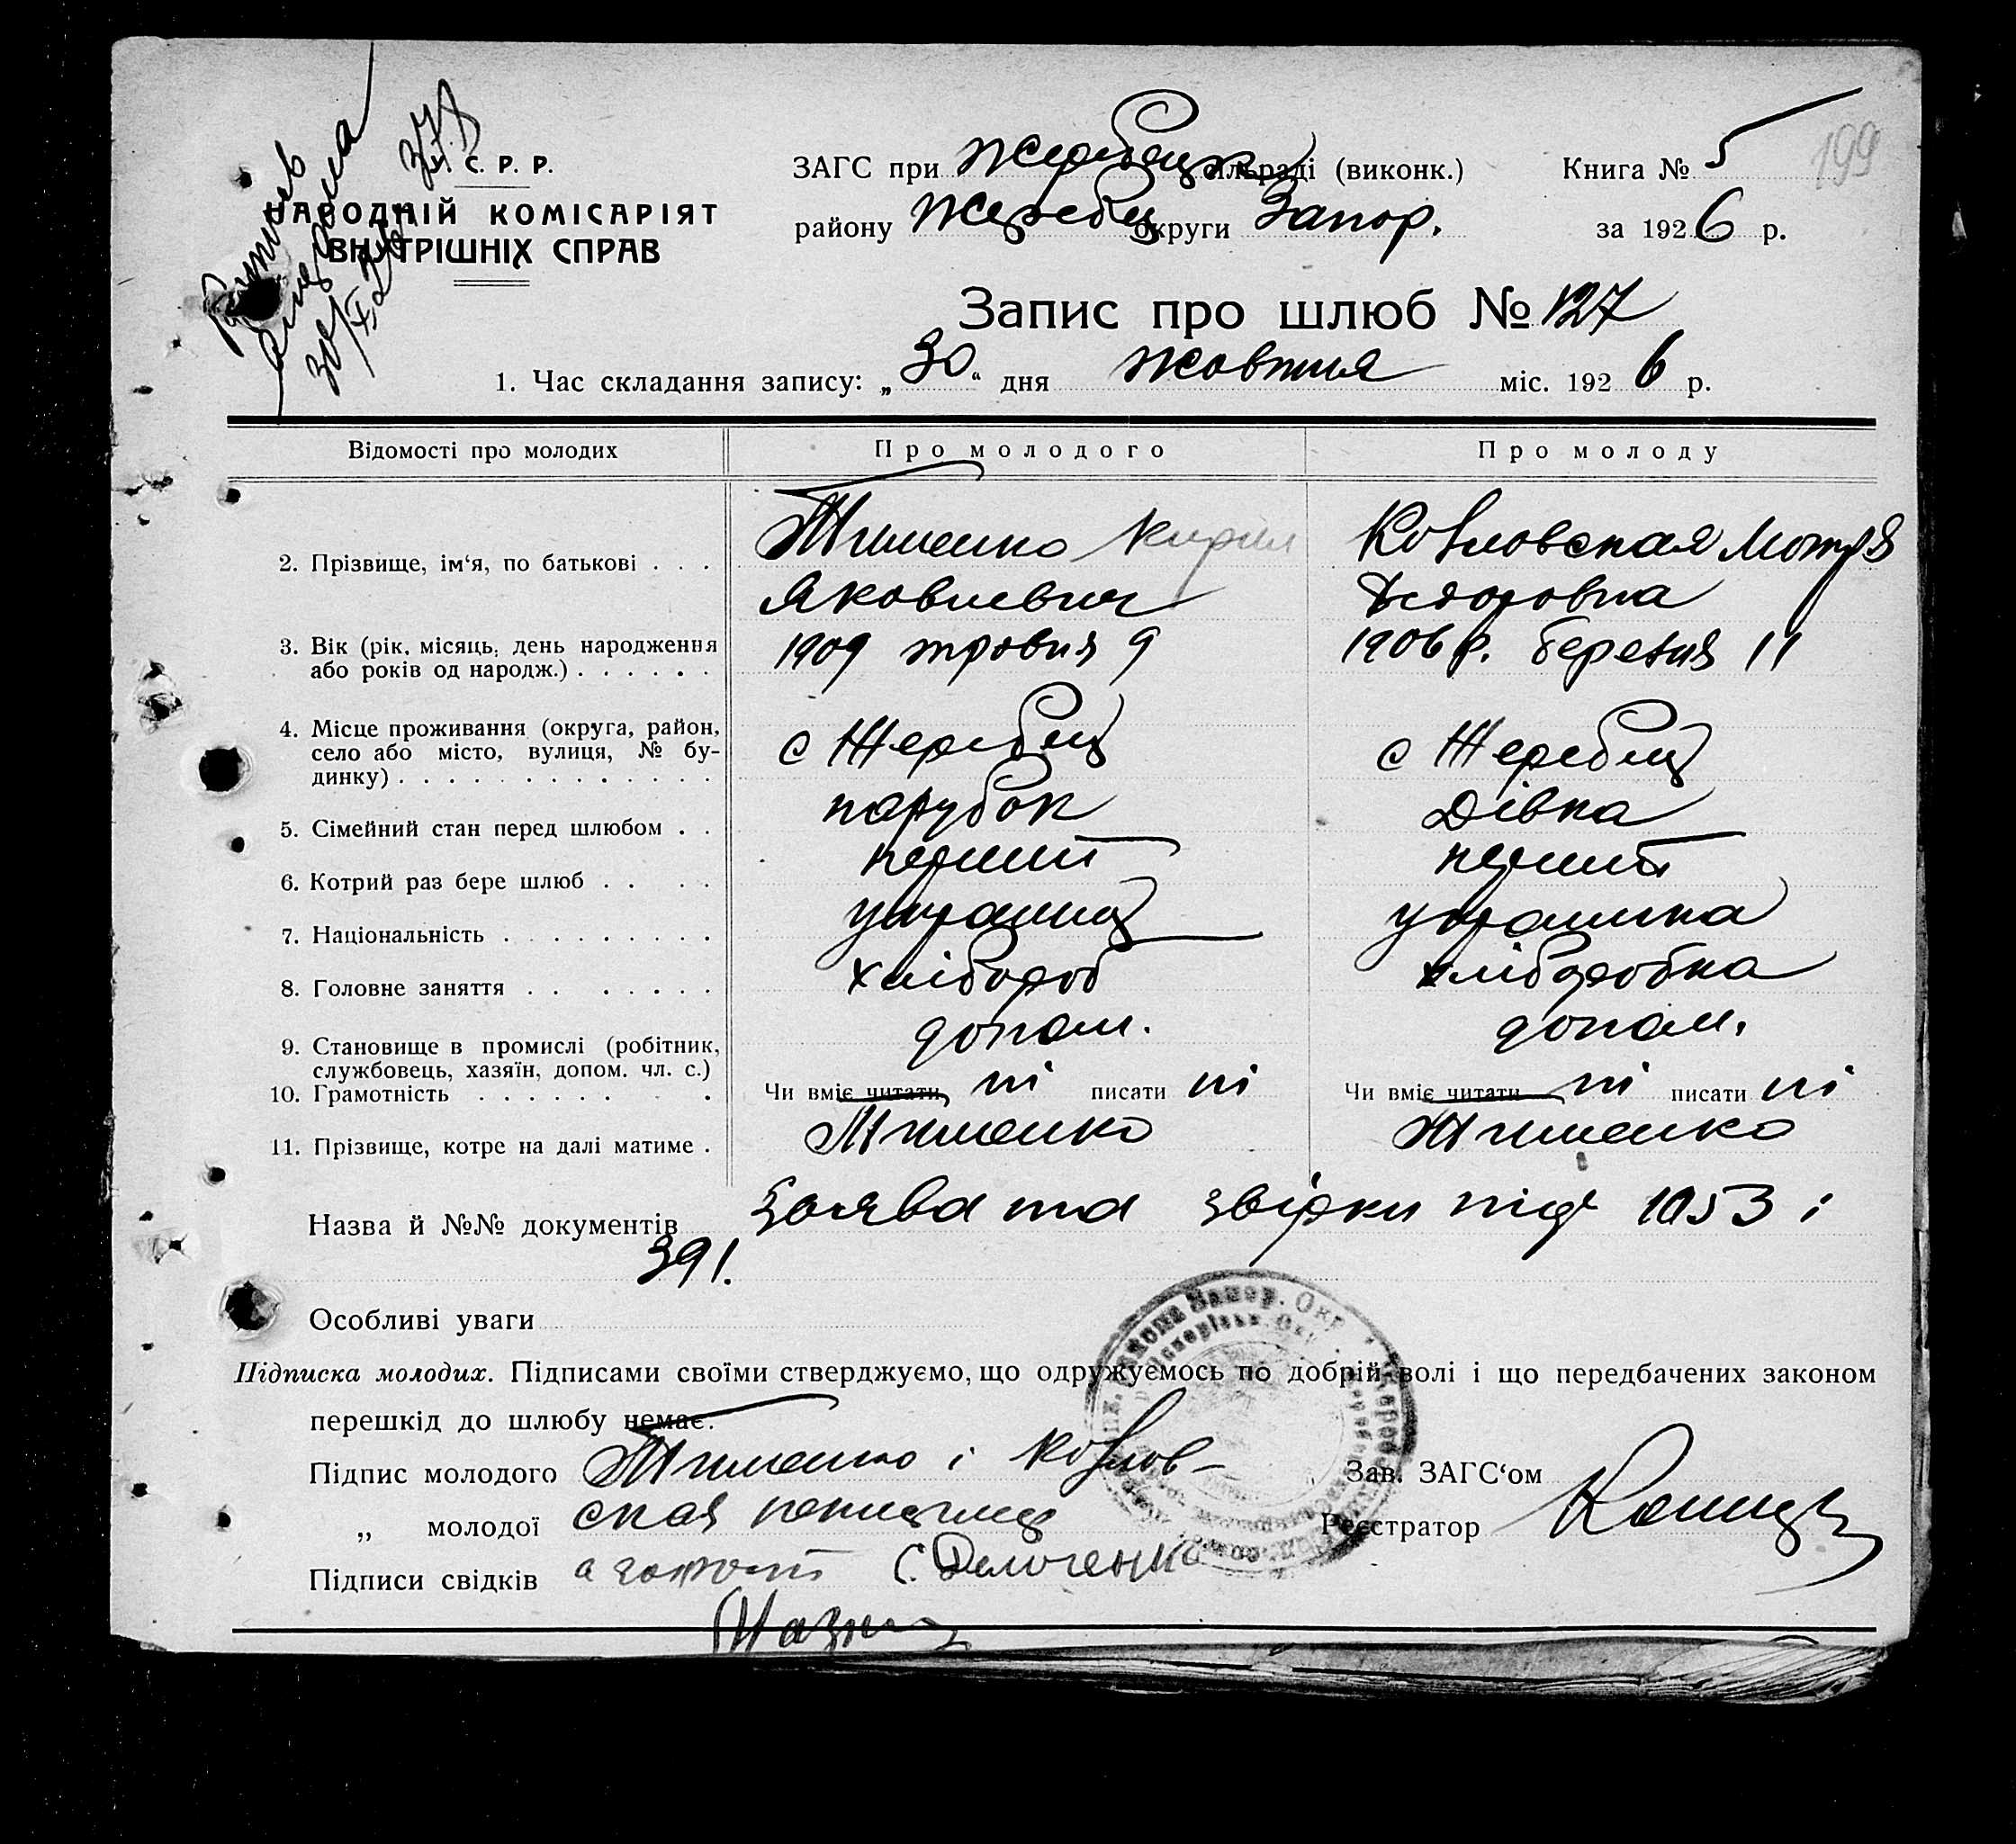 У. С. Р. Р.
НАРОДНІЙ КОМІСАРІЯТ
ВНУТРІШНІХ СПРАВ
ЗАГС при Жеребецк сільраді (виконк.) Книга № 5
199
району Жеребец округи Запор. за 1926 р.
Запис про шлюб № 127
1. Час складання запису: „30“ дня жовтня міс. 1926 р.
Відомості про молодих Про молодого Про молоду
2. Прізвище, ім‘я, по батькові . . . Тименко Кирил Козловская Мотря
Яковлевич Федоровна
3. Вік (рік, місяць, день народження 1909 травня 9 1906 р. березня 11
або років од народж.) . . . . . .
4. Місце проживання (округа, район, с Жеребец с Жеребец
село або місто, вулиця, № бу-
динку) . . . . . . . . . . . . .
5. Сімейний стан перед шлюбом . . парубок Дівка
6. Котрий раз бере шлюб . . . . перший перший
7. Національність . . . . . . . . . українец українка
8. Головне заняття . . . . . . . хлібороб хліборобка
9. Становище в промислі (робітник, допом. допом.
службовець, хазяїн, допом. чл. с.)
10. Грамотність . . . . . . . . Чи вміє читати ні писати ні Чи вміє читати ні писати ні
11. Прізвище, котре на далі матиме . Тименко Тименко
Назва й №№ документів Заява та звірки під 1053 і
391.
Особливі уваги
Підписка молодих. Підписами своїми стверджуємо, що одружуємось по добрій волі і що передбачених законом
перешкід до шлюбу немає.
Підпис молодого Тименко і Козлов-
„ молодої ская
Зав. ЗАГС‘ом
Реєстратор
Підписи свідків